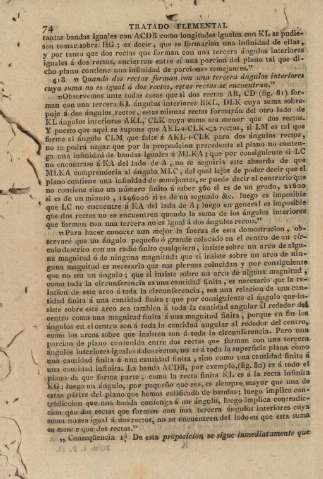 74 TRATADO ELEMENTAL
tantas bandas iguales con ACDB como longitudes iguales con KL se pudie-
sen tomar sobre HG; es decir, que se formarian una infinidad de ellas,
y por tanto que dos rectas que forman con una tercera ángulos interiores
iguales á dos rectos, encierran entre sí una porcion del plano tal que di-
cho plano contiene una infinidad de porciones semejantes."
418. « Quando dos rectas forman con una tercera ángulos interiores
cuya suma no es igual á dos rectos, estas rectas se encuentran."
«Observemos ante todas cosas que si dos rectas AB, CD (fig. 81) for-
man con una tercera KL ángulos interiores BKL, DLK cuya suma sobre-
puje á dos ángulos rectos, estas mismas rectas formarán del otro lado de
KL ángulos interiores AKL, CLK cuya suma será menor que dos rectos.
Y puesto que aquí se supone que AKL+CLK<2 rectos, si LM es tal que
forme el ángulo CLM que falte á AKL+CLK para dos ángulos rectos,
no se podrá negar que por la proposicion precedente el plano no conten-
ga una infinidad de bandas iguales á MLKA; y que por consiguiente si LC
no encuentra á KA del lado de A, no se seguiria este absurdo de que
MLKA comprenderia al ángulo MLC, del qual lejos de poder decir que el
plano contiene una infinidad de semejantes, se puede decir al contrario que
no contiene sino un número finito á saber 360 si es de un grado, 21600
si es de un minuto, 1296000 si es de un segundo &c. luego es imposible
que LC no encuentre á KA del lado de A; luego en general es imposible
que dos rectas no se encuentren quando la suma de los ángulos interiores
que forman con una tercera no es igual á dos ángulos rectos."
«Para hacer conocer aun mejor la fuerza de esta demostracion, ob-
servaré que un ángulo pequeño ó grande colocado en el centro de un cír-
culo descrito con un radio finito qualquiera, insiste sobre un arco de algu-
na magnitud ó de ninguna magnitud: que si insiste sobre un arco de nin-
guna magnitud es necesario que sus piernas coincidan y por consiguiente
que no sea un ángulo; que si insiste sobre un arco de alguna magnitud,
como toda la circunferencia es una cantidad finita, es necesario que la re-
lacion de este arco á toda la circunferencia, sea una relacion de una can-
tidad finita á una cantidad finita: y que por consiguiente el ángulo que in-
siste sobre este arco sea tambien á toda la cantidad angular al rededor del
centro como una magnitud finita á una magnitud finita, porque en fin los
ángulos en el centro son á toda la cantidad angular al rededor del centro,
como los arcos sobre que insisten son á toda la circunferencia. Pero una
porcion de plano contenida entre dos rectas que forman con una tercera
ángulos interiores iguales á dos rectos, no es á toda la superficie plana como
una cantidad finita á una cantidad finita, sino como una cantidad finita á
una cantidad infinita. La banda ACDB, por exemplo, (fig. 80) es á todo el
plano de que forma parte; como la recta finita KL es á la recta infinita
KG; luego un ángulo, por pequeño que sea, es siempre mayor que una de
estas partes del plano que hemos calificado de bandas; luego implica con-
tradiccion que una banda contenga á un ángulo, luego implica contradic-
cion que dos rectas que formen con una tercera ángulos interiores cuya
suma no sea igual á dos rectos, no se encuentren del lado en que esta suma
es menor que dos rectos."
„ Conseqüencia 1ª De esta proposicion se sigue inmediatamente que